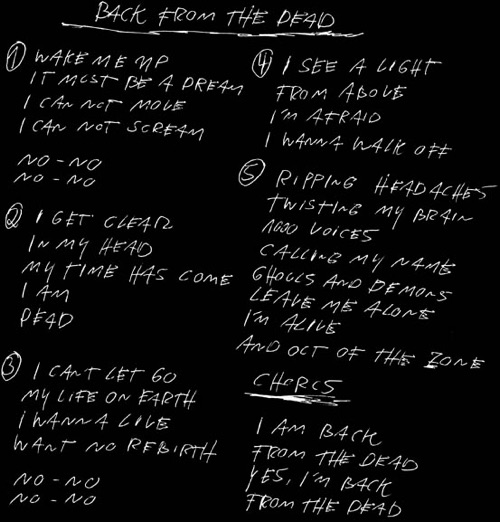 BACK FROM THE DEAD
1 WAKE ME UP
IT MUST BE A DREAM
I CAN NOT MOVE
I CAN NOT SCREAM
NO - NO
NO - NO
2 I GET CLEAR
IN MY HEAD
MY TIME HAS COME
I AM
DEAD
3 I CANT LET GO
MY LIFE ON EARTH
I WANNA LIVE
WANT NO REBIRTH
NO - NO
NO - NO
4 I SEE A LIGHT
FROM ABOVE
I'M AFRAID
I WANNA WALK OFF
5 RIPPING HEADACHES
TWISTING MY BRAIN
1000 VOICES
CALLING MY NAME
GHOULS AND DEMONS
LEAVE ME ALONE
I'M ALIVE
AND OUT OF THE ZONE
CHORUS
I AM BACK
FROM THE DEAD
YES, I'M BACK
FROM THE DEAD